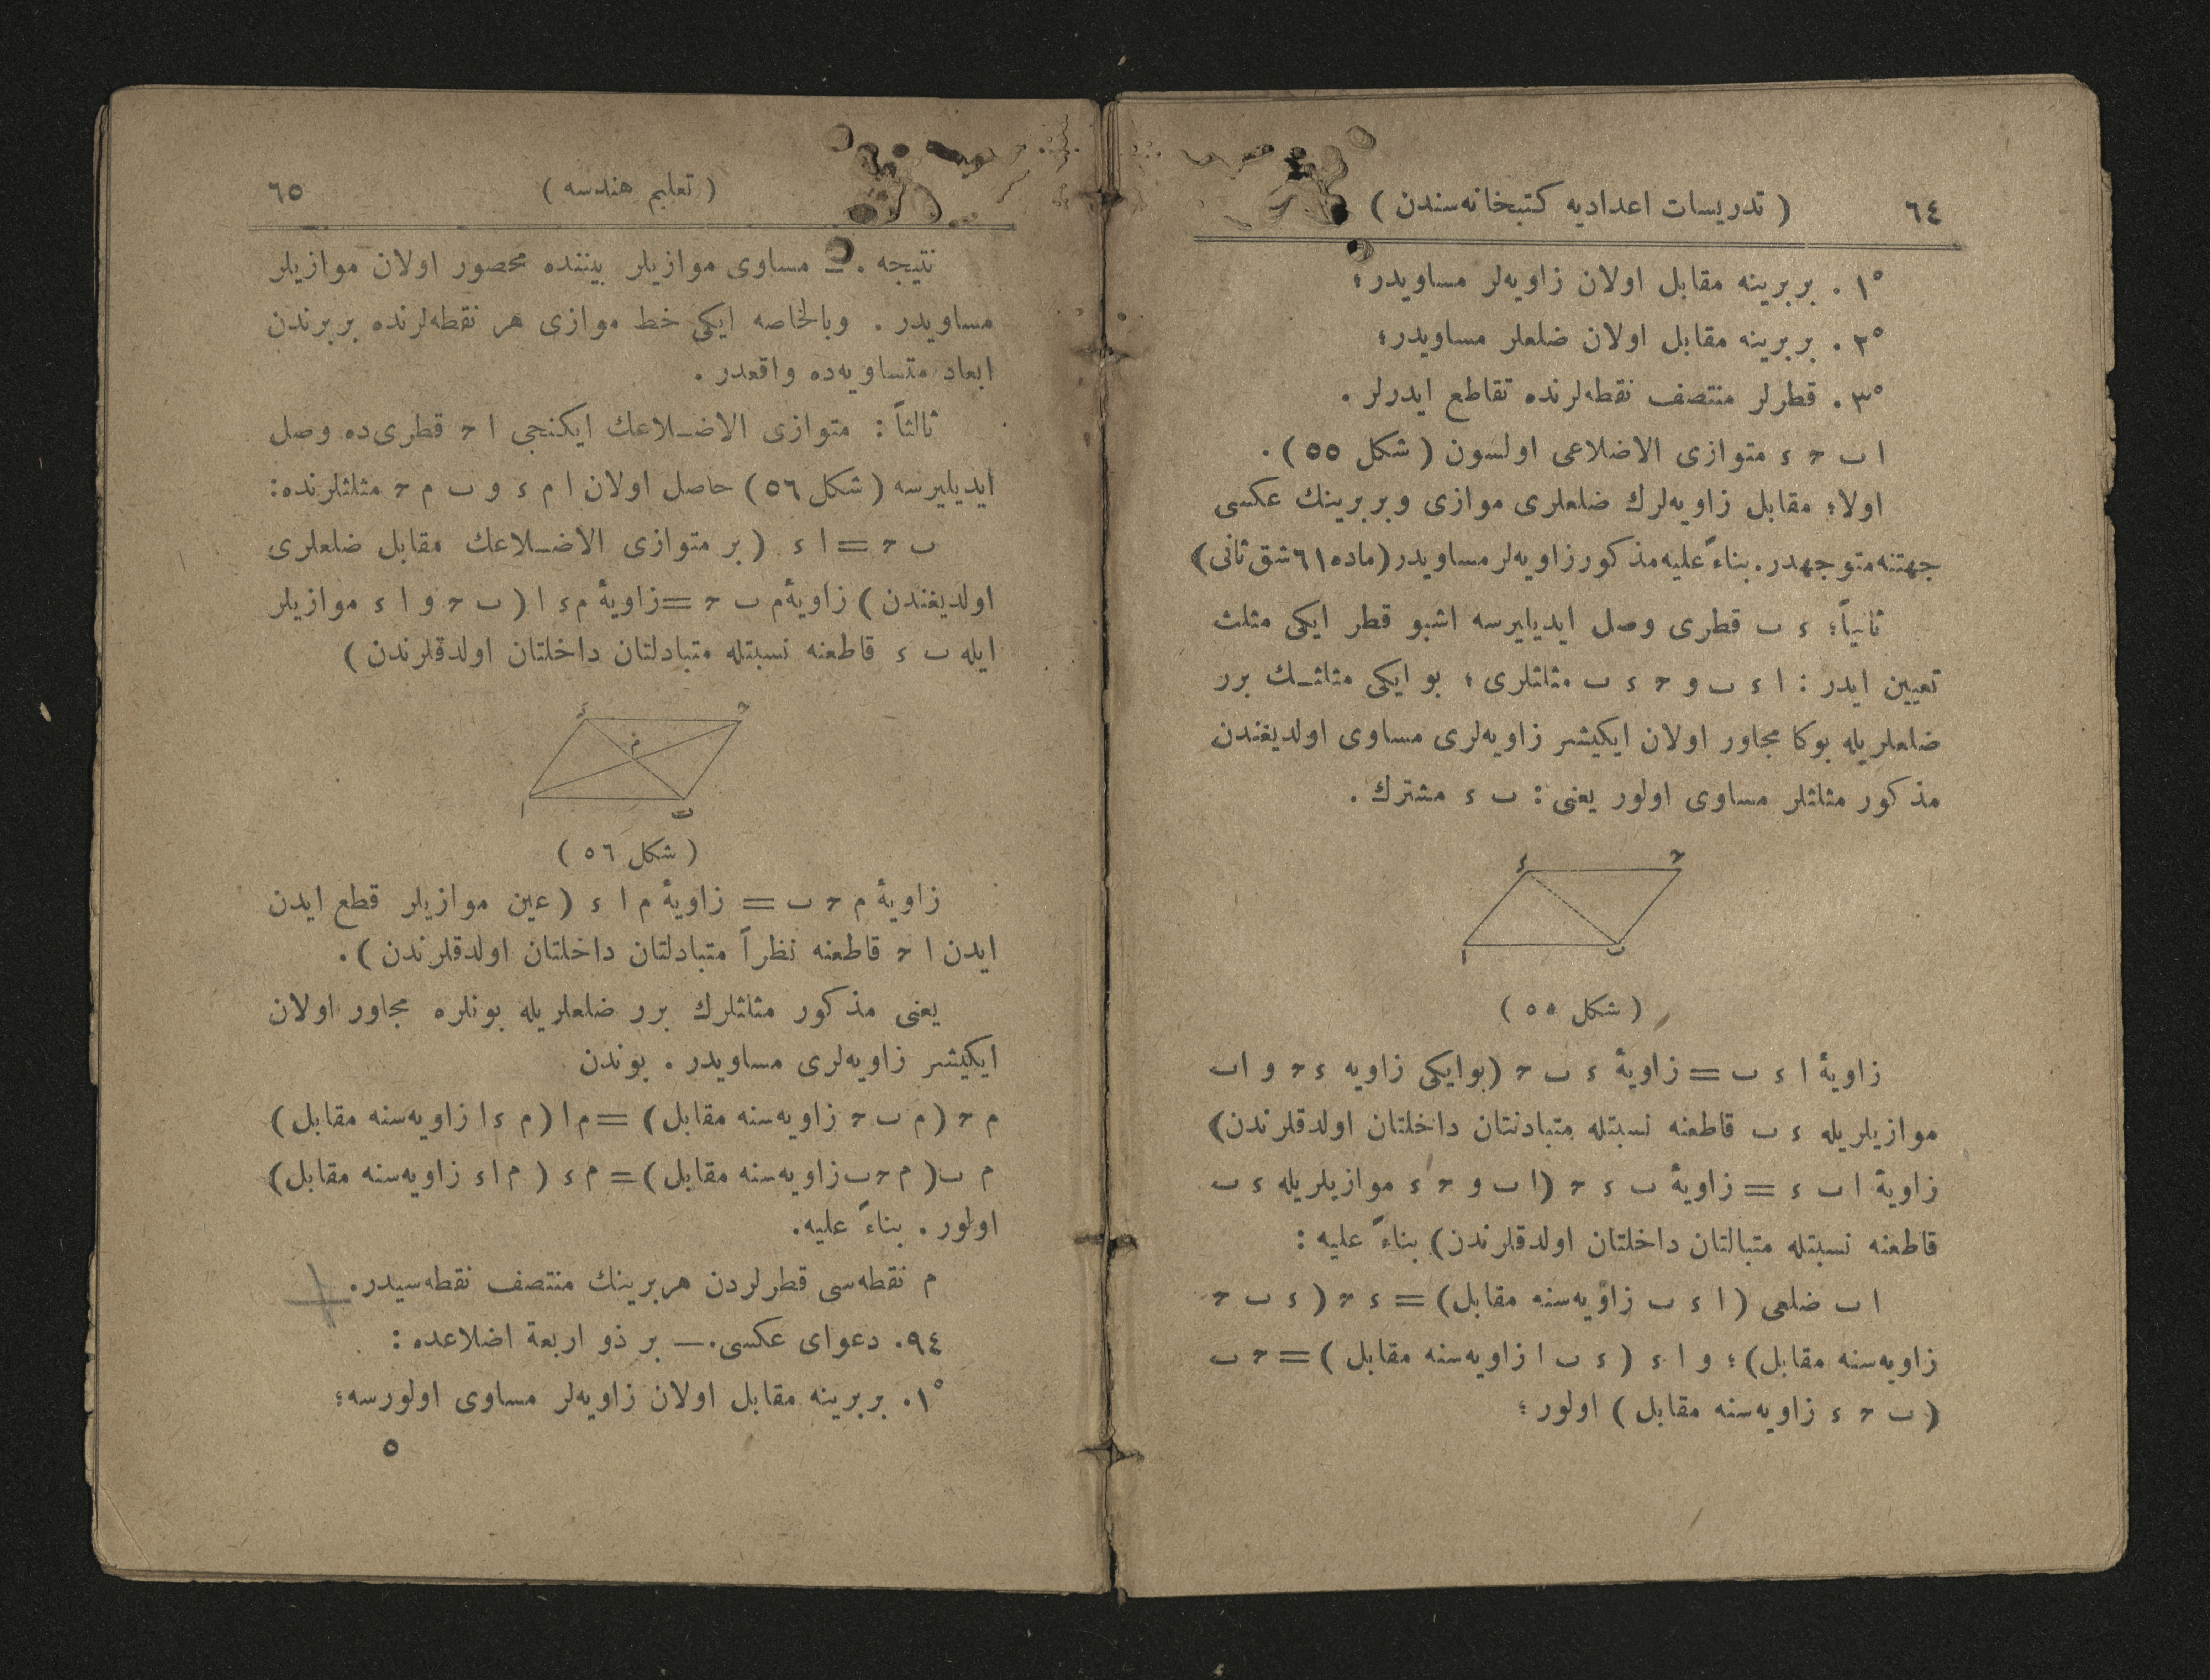 ٦٤ ( تدريسات اعداديه كتبخانه‌سندن )
١° . بربرينه مقابل اولان زاويه‌لر مساويدر؛
٢° . بربرينه مقابل اولان ضلعلر مساويدر؛
٣° . قطرلر منتصف نقطه‌لرنده تقاطع ايدرلر .
ا ب ح ء متوازى الاضلاعى اولسون ( شكل ٥٥ ) .
اولا؛ مقابل زاويه‌لرك ضلعلرى موازى وبربرينك عكسى
جهتنه متوجهدر. بناءً عليه مذكور زاويه‌لر مساويدر (ماده ٦١ شق ثانى)
ثانياً؛ ء ب قطرى وصل ايديليرسه اشبو قطر ايكى مثلث
تعيين ايدر : ا ء ب و ح ء ب مثلثلرى ؛ بو ايكى مثلثـك برر
ضلعلريله بوكا مجاور اولان ايكيشر زاويه‌لرى مساوى اولديغندن
مذكور مثلثلر مساوى اولور يعنى : ب ء مشترك .
ء ح
ا ب
( شكل ٥٥ )
زاويهٔ ا ء ب = زاويهٔ ء ب ح (بوايكى زاويه ء ح و اب
موازيلريله ء ب قاطعنه نسبتله متبادنتان داخلتان اولدقلرندن)
زاويهٔ ا ب ء = زاويهٔ ب ء ح (ا ب و ح ء موازيلريله ء ب
قاطعنه نسبتله متبالتان داخلتان اولدقلرندن) بناءً عليه :
ا ب ضلعى (ا ء ب زاويه‌سنه مقابل) = ء ح ( ء ب ح
زاويه‌سنه مقابل) ؛ و ا ء ( ء ب ا زاويه‌سنه مقابل ) = ح ب
( ب ح ء زاويه‌سنه مقابل ) اولور ؛
( تعليم هندسه ) ٦٥
نتيجه . — مساوى موازيلر بيننده محصور اولان موازيلر
مساويدر . وبالخاصه ايكى خط موازى هر نقطه‌لرنده بربرندن
ابعاد متساويه‌ده واقعدر .
ثالثاً : متوازى الاضـلاعك ايكنجى ا ح قطرى‌ده وصل
ايديليرسه ( شكل ٥٦ ) حاصل اولان ا م ء و ب م ح مثلثلرنده:
ب ح = ا ء ( بر متوازى الاضـلاعك مقابل ضلعلرى
اولديغندن ) زاويهٔ م ب ح = زاويهٔ م ء ا ( ب ح و ا ء موازيلر
ايله ب ء قاطعنه نسبتله متبادلتان داخلتان اولدقلرندن )
ء ح
م
ا ب
( شكل ٥٦ )
زاويهٔ م ح ب = زاويهٔ م ا ء ( عين موازيلر قطع ايدن
ايدن ا ح قاطعنه نظراً متبادلتان داخلتان اولدقلرندن ) .
يعنى مذكور مثلثلرك برر ضلعلريله بونلره مجاور اولان
ايكيشر زاويه‌لرى مساويدر . بوندن
م ح ( م ب ح زاويه‌سنه مقابل ) = م ا ( م ء ا زاويه‌سنه مقابل )
م ب ( م ح ب زاويه‌سنه مقابل ) = م ء ( م ا ء زاويه‌سنه مقابل )
اولور . بناءً عليه.
م نقطه‌سى قطرلردن هربرينك منتصف نقطه‌سيدر.
٩٤. دعواى عكسى. — بر ذو اربعة اضلاعده :
١°. بربرينه مقابل اولان زاويه‌لر مساوى اولورسه؛
٥